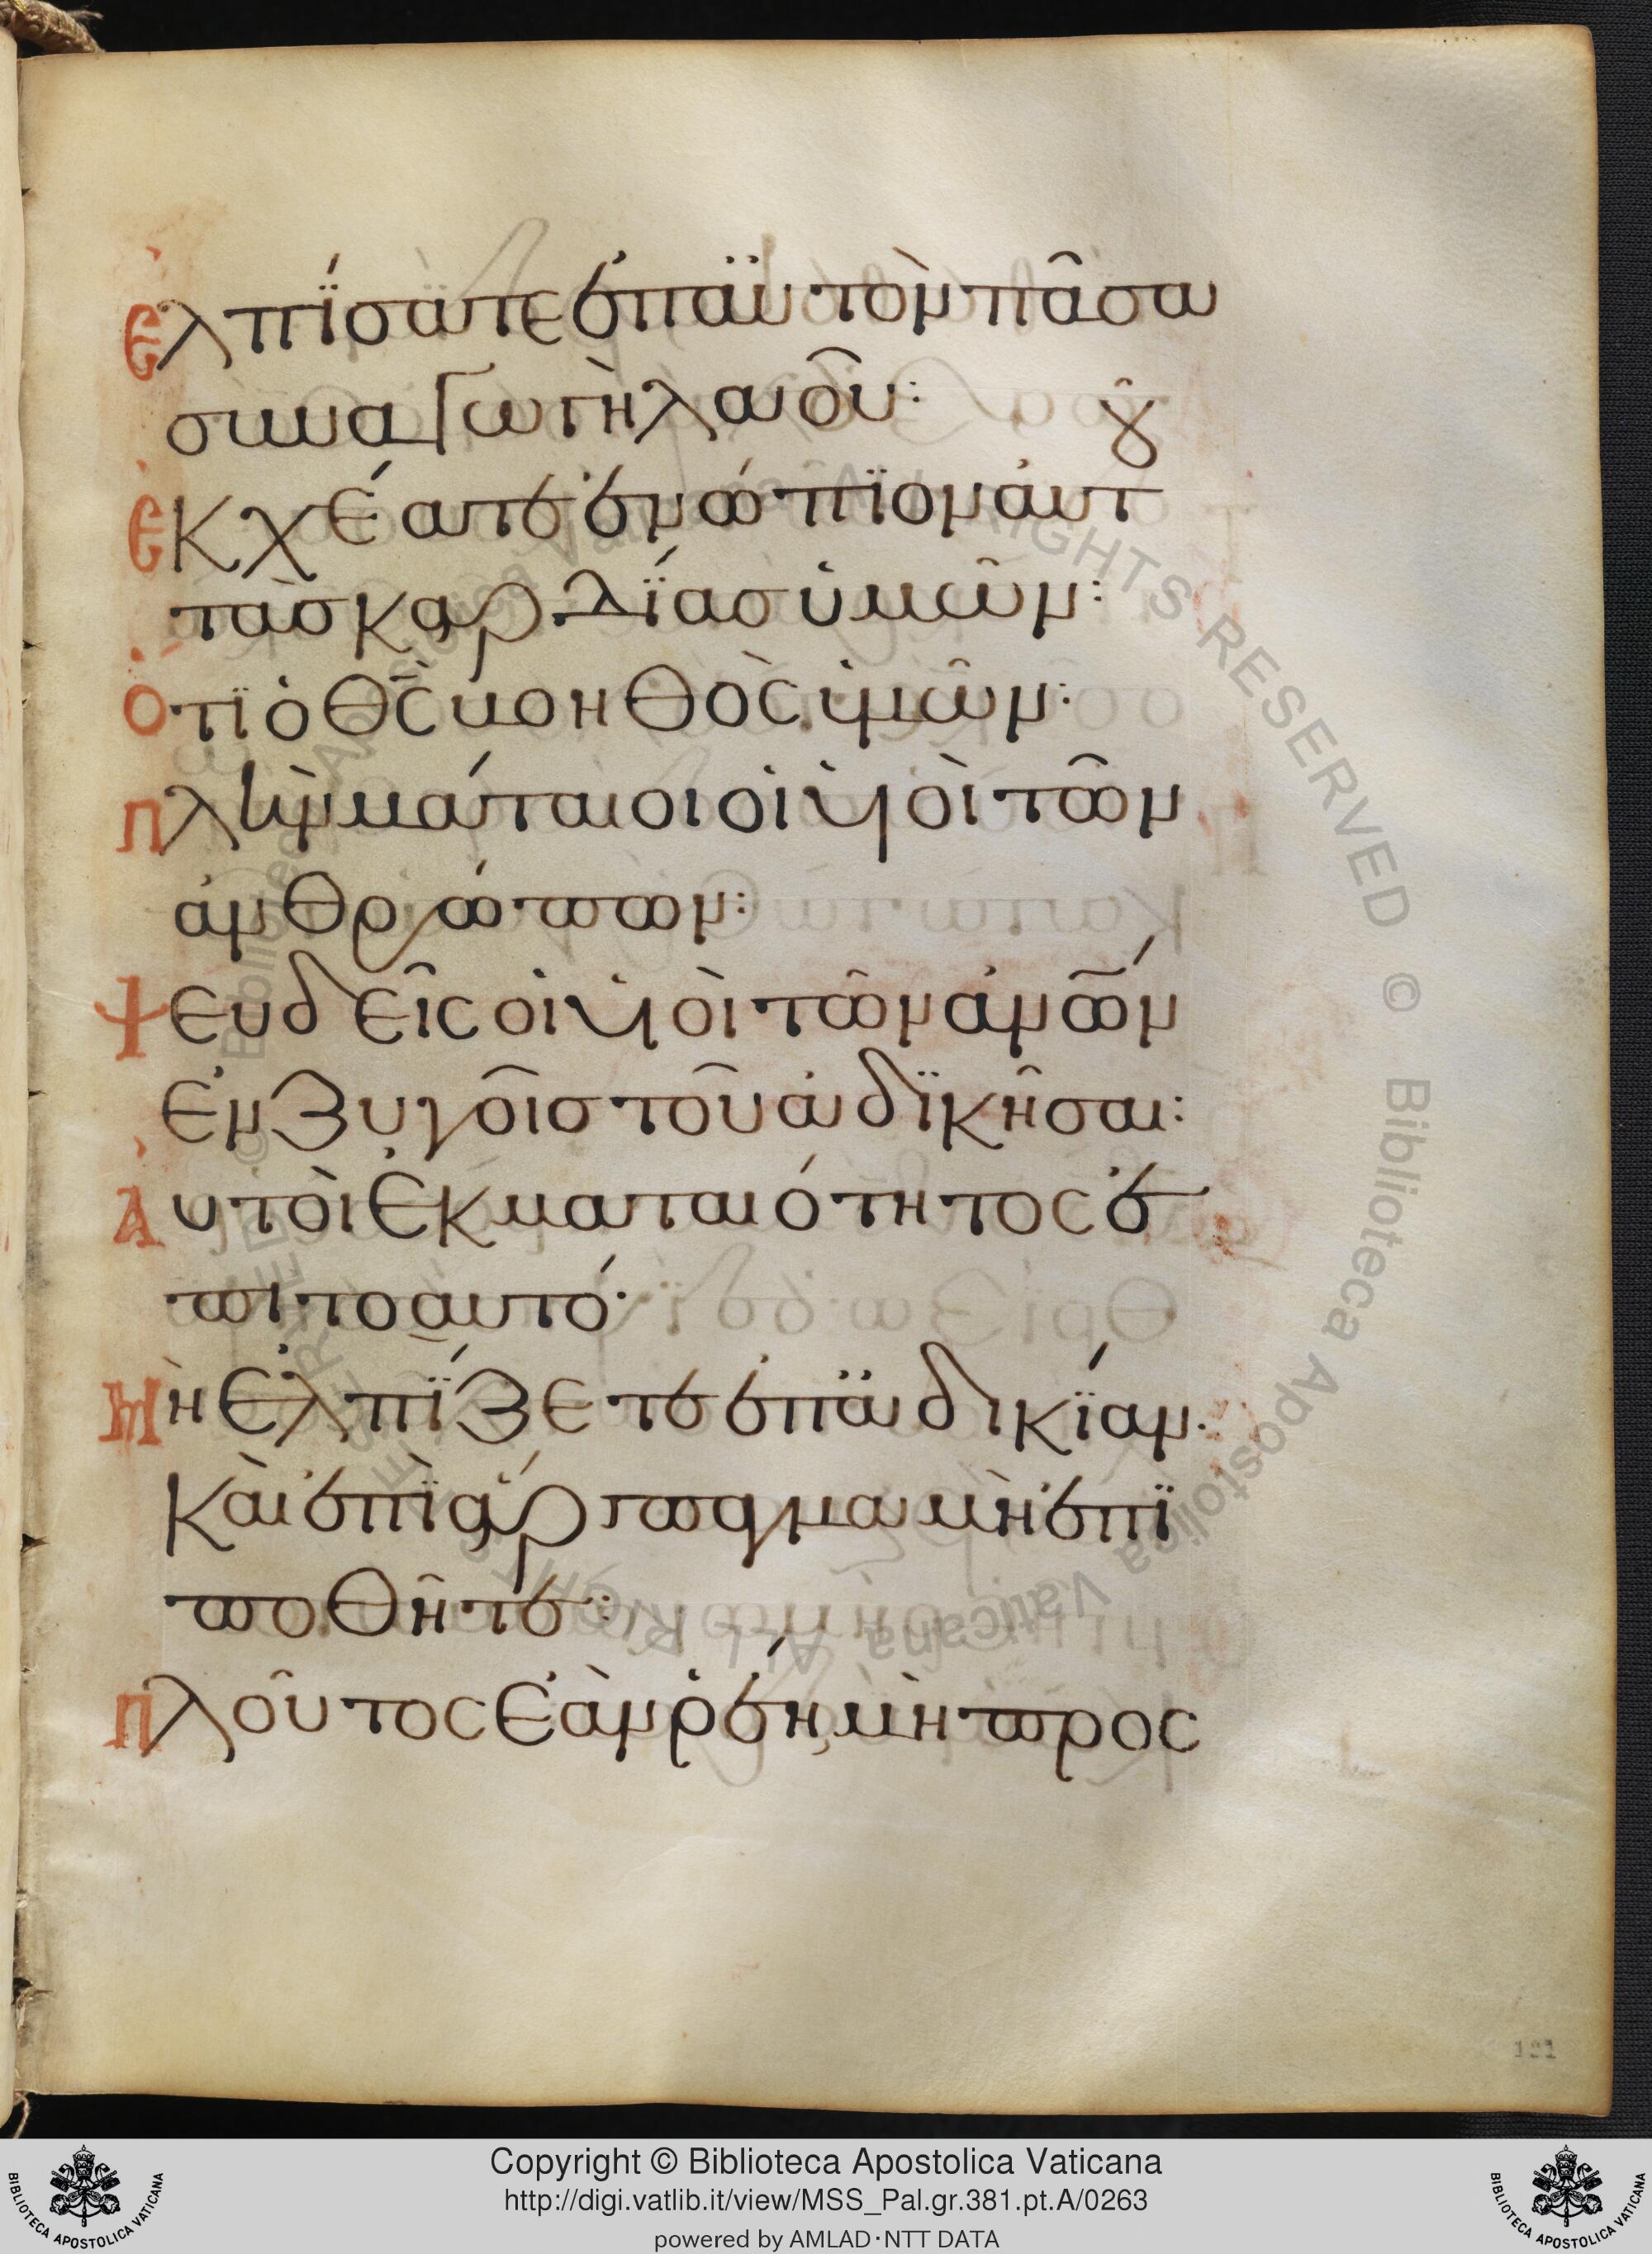 ἐλπίσατε ἐπ αὐτὸν πᾶσα
συναγωγὴ λαοῦ: ȣ
ἐκχέατε ἐνώπϊον ἀυτ
τὰσ καρδίασ ὑμῶν:
ὅτϊ ὁ θ̅ς̅ βοηθὸς ἡμῶν:
πλὴν μάταιοι οἱ ὑιοὶ τῶν
ἀνθρώπων:
ψευδεῖς οἱ ὑιοὶ τῶν ἀν̅ω̅ν
ἐν ζυγοῖσ τοῦ ἀδϊκῆσαι:
ἀυτοὶ ἐκ ματαιότητος ἐ
πι το αυτό·
μὴ ἐλπίζετε ἐπ ἀδικίαν·
κὰι ἐπῒ ἅρπαγμα μὴ ἐπϊ
ποθῆτε:
πλοῦτος ἐὰν ῥέῃ μὴ προς
121
Copyright © Biblioteca Apostolica Vaticana
http://digi.vatlib.it/view/MSS_Pal.gr.381.pt.A/0263
powered by AMLAD·NTT DATA
BIBLIOTECA APOSTOLICA VATICANA
BIBLIOTECA APOSTOLICA VATICANA